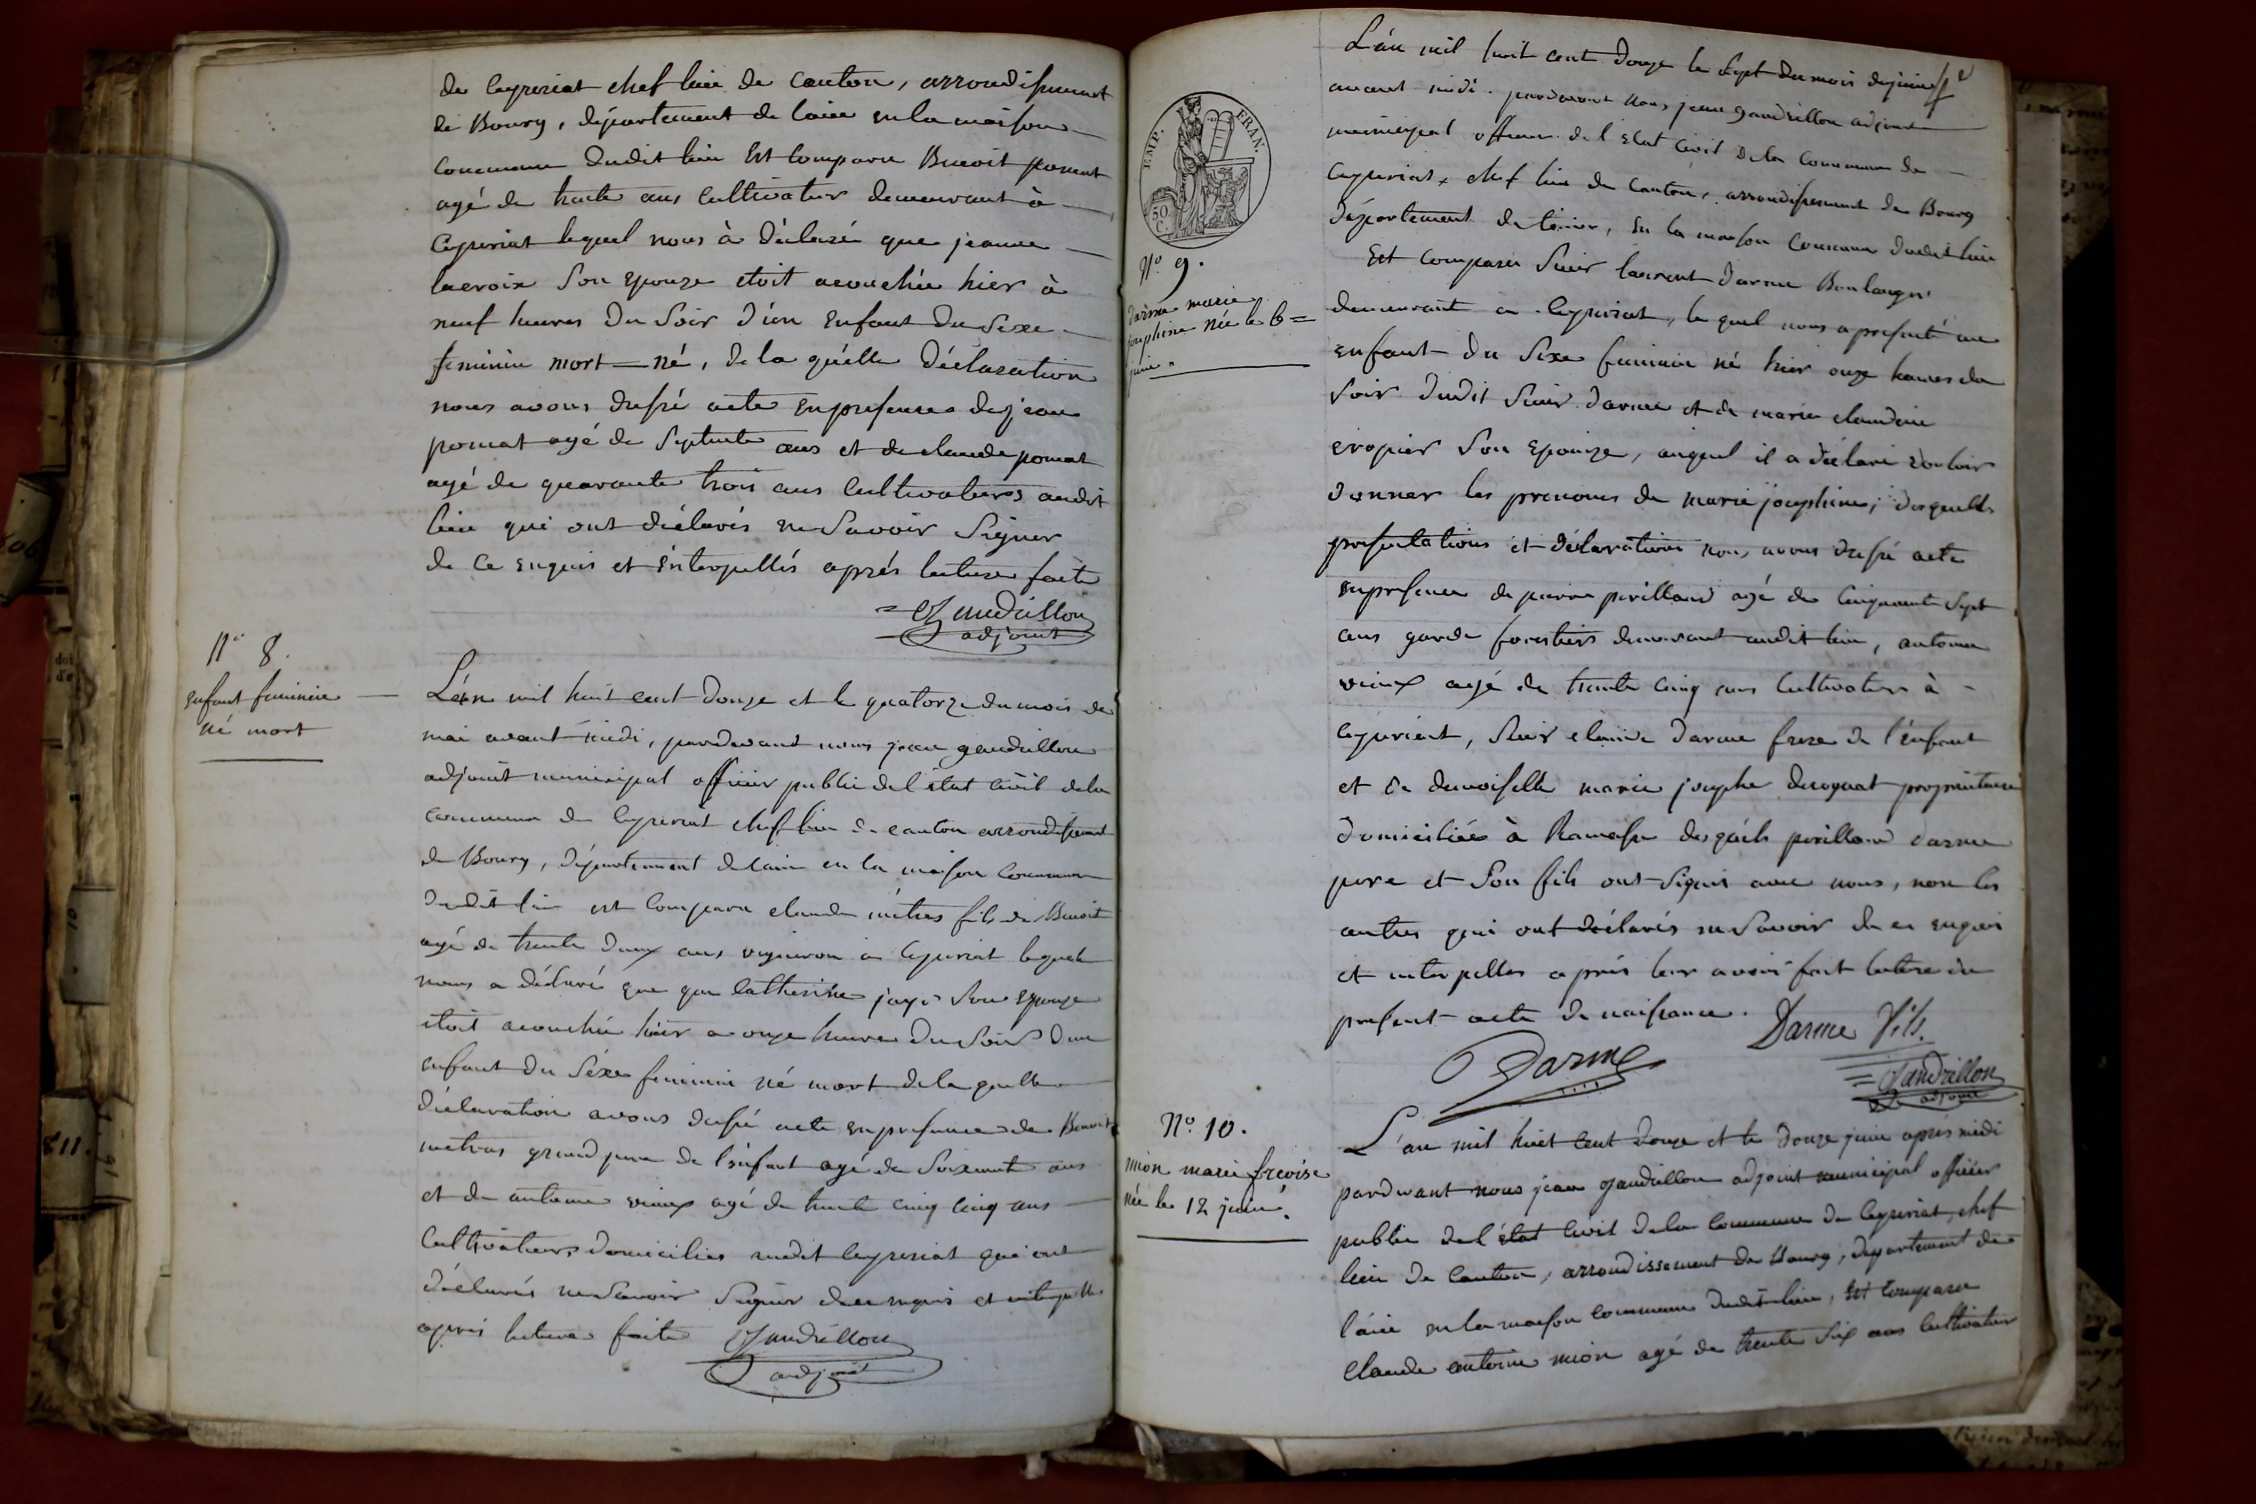 de Ceyzeriat chef lieu de canton, arrondissement
de Bourg, département de l'ain en la maison
commune dudit lieu Est comparu Benoit pomat
agé de trente ans cultivateur demeurant à
Ceyzeriat lequel nous à déclaré que jeanne
lacroix Son epouze etoit acouchée hier à
neuf heures du Soir d'un Enfant du Sexe
feminin mort-né, de la quelle Déclaration
nous avons dressé acte en presence de jean
pomat agé de Septente ans et de claude pomat
agé de quarante trois ans cultivateurs audit
lieu qui ont déclarés ne Savoir Signer
de ce enquis et interpellés aprés lecture faite
Gandrillon
adjoint
N° 8.
enfant feminin
né mort
L'an mil huit cent douze et le quatorze du mois de
mai avant midi, pardevant nous jean gandrillon
adjoint municipal officier public de l'état civil de la
commune de Ceyzeriat chef lieu de canton arrondissement
de Bourg, département de l'ain en la maison commune
dudit lieu est comparu claude métras fils de Benoit
agé de trente deux ans vigneron à Ceyzeriat lequel
nous a déclaré que que Catherine Son epouze
étoit acouchée hier a onze heures du Soir d'un
enfant du Séxe feminin né mort de la quelle
déclaration avons dressé acte en presence de Benoit
metras grand pere de l'enfant agé de Soixante ans
et de antoine vieux agé de trente cinq cinq ans
Cultivateurs domiciliés audit Ceyzeriat qui ont
déclarés ne Savoir Signer de ce enquis et interpellés
aprés lecture faite Gandrillon
adjoint
EMP. FRAN.
50 C.
N° 9.
Darme marie
josephine née le 6
juin.
L'an mil huit cent douze le Sept du mois de juin
avant midi pardevant nous jean gandrillon adjoint
municipal officier de l'état civil de la commune de
Ceyzeriat, chef lieu de canton, arrondissement de Bourg
département de l'ain, en la maison commune dudit lieu
Est comparu Sieur laurent darme Boulanger
demeurant a Ceyzeriat, le quel nous a presenté un
enfant du Sexe feminin né hier onze heures du
Soir dudit Sieur darme et de marie claudine
Son Epouze, auquel il a déclaré vouloir
donner les prenoms de marie josephine, desquelles
presentations et déclarations nous avons dressé acte
en presence de pierre perillard agé de Cinquante Sept
ans garde forestiers demeurant audit lieu, antoine
vieux agé de trente cinq ans Cultivateur à
Ceyzeriat, Sieur claude darme frere de l'enfant
et de demoiselle marie josephe proprietaire
domiciliée à Ramasse desquels perillard darme
pere et Son fils ont Signés avec nous, non les
autres qui ont déclarés ne Savoir de ce enquis
et interpellés aprés leur avoir fait lecture du
present acte de naissance.
Darme fils.
Darme
Gandrillon
adjoint
N° 10.
mion marie
née le 12 juin.
L'an mil huit cent douze et le douze juin apres midi
pardevant nous jean gandrillon adjoint municipal officier
public de l'état civil de la commune de Ceyzeriat, chef
lieu de canton, arrondissement de Bourg, departement de
l'ain en la maison commune dudit lieu, Est comparu
Claude antoine mion agé de trente Six ans Cultivateur